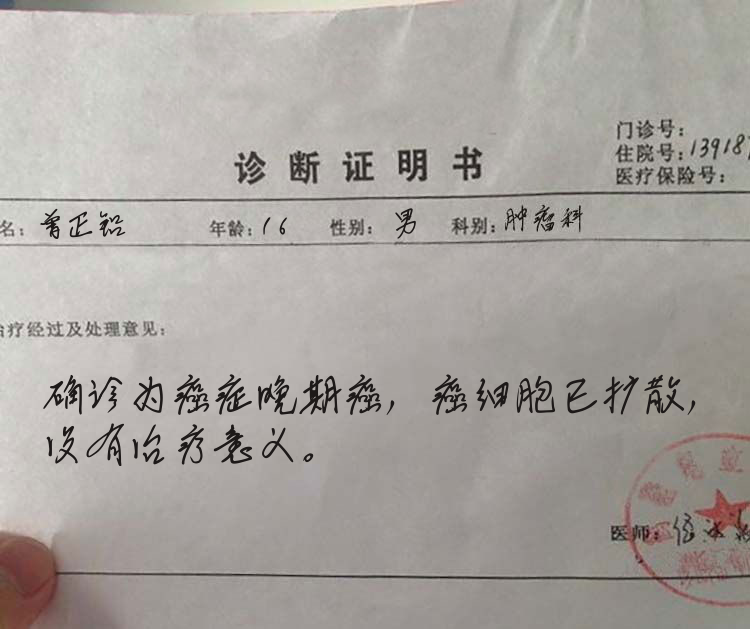 门诊号:
住院号:13918
医疗保险号:
诊断证明书
名: 曾正铝 年龄:16 性别: 男 科别: 肿瘤科
治疗经过及处理意见:
确诊为癌症晚期癌,癌细胞已扩散,
没有治疗意义。
医师: